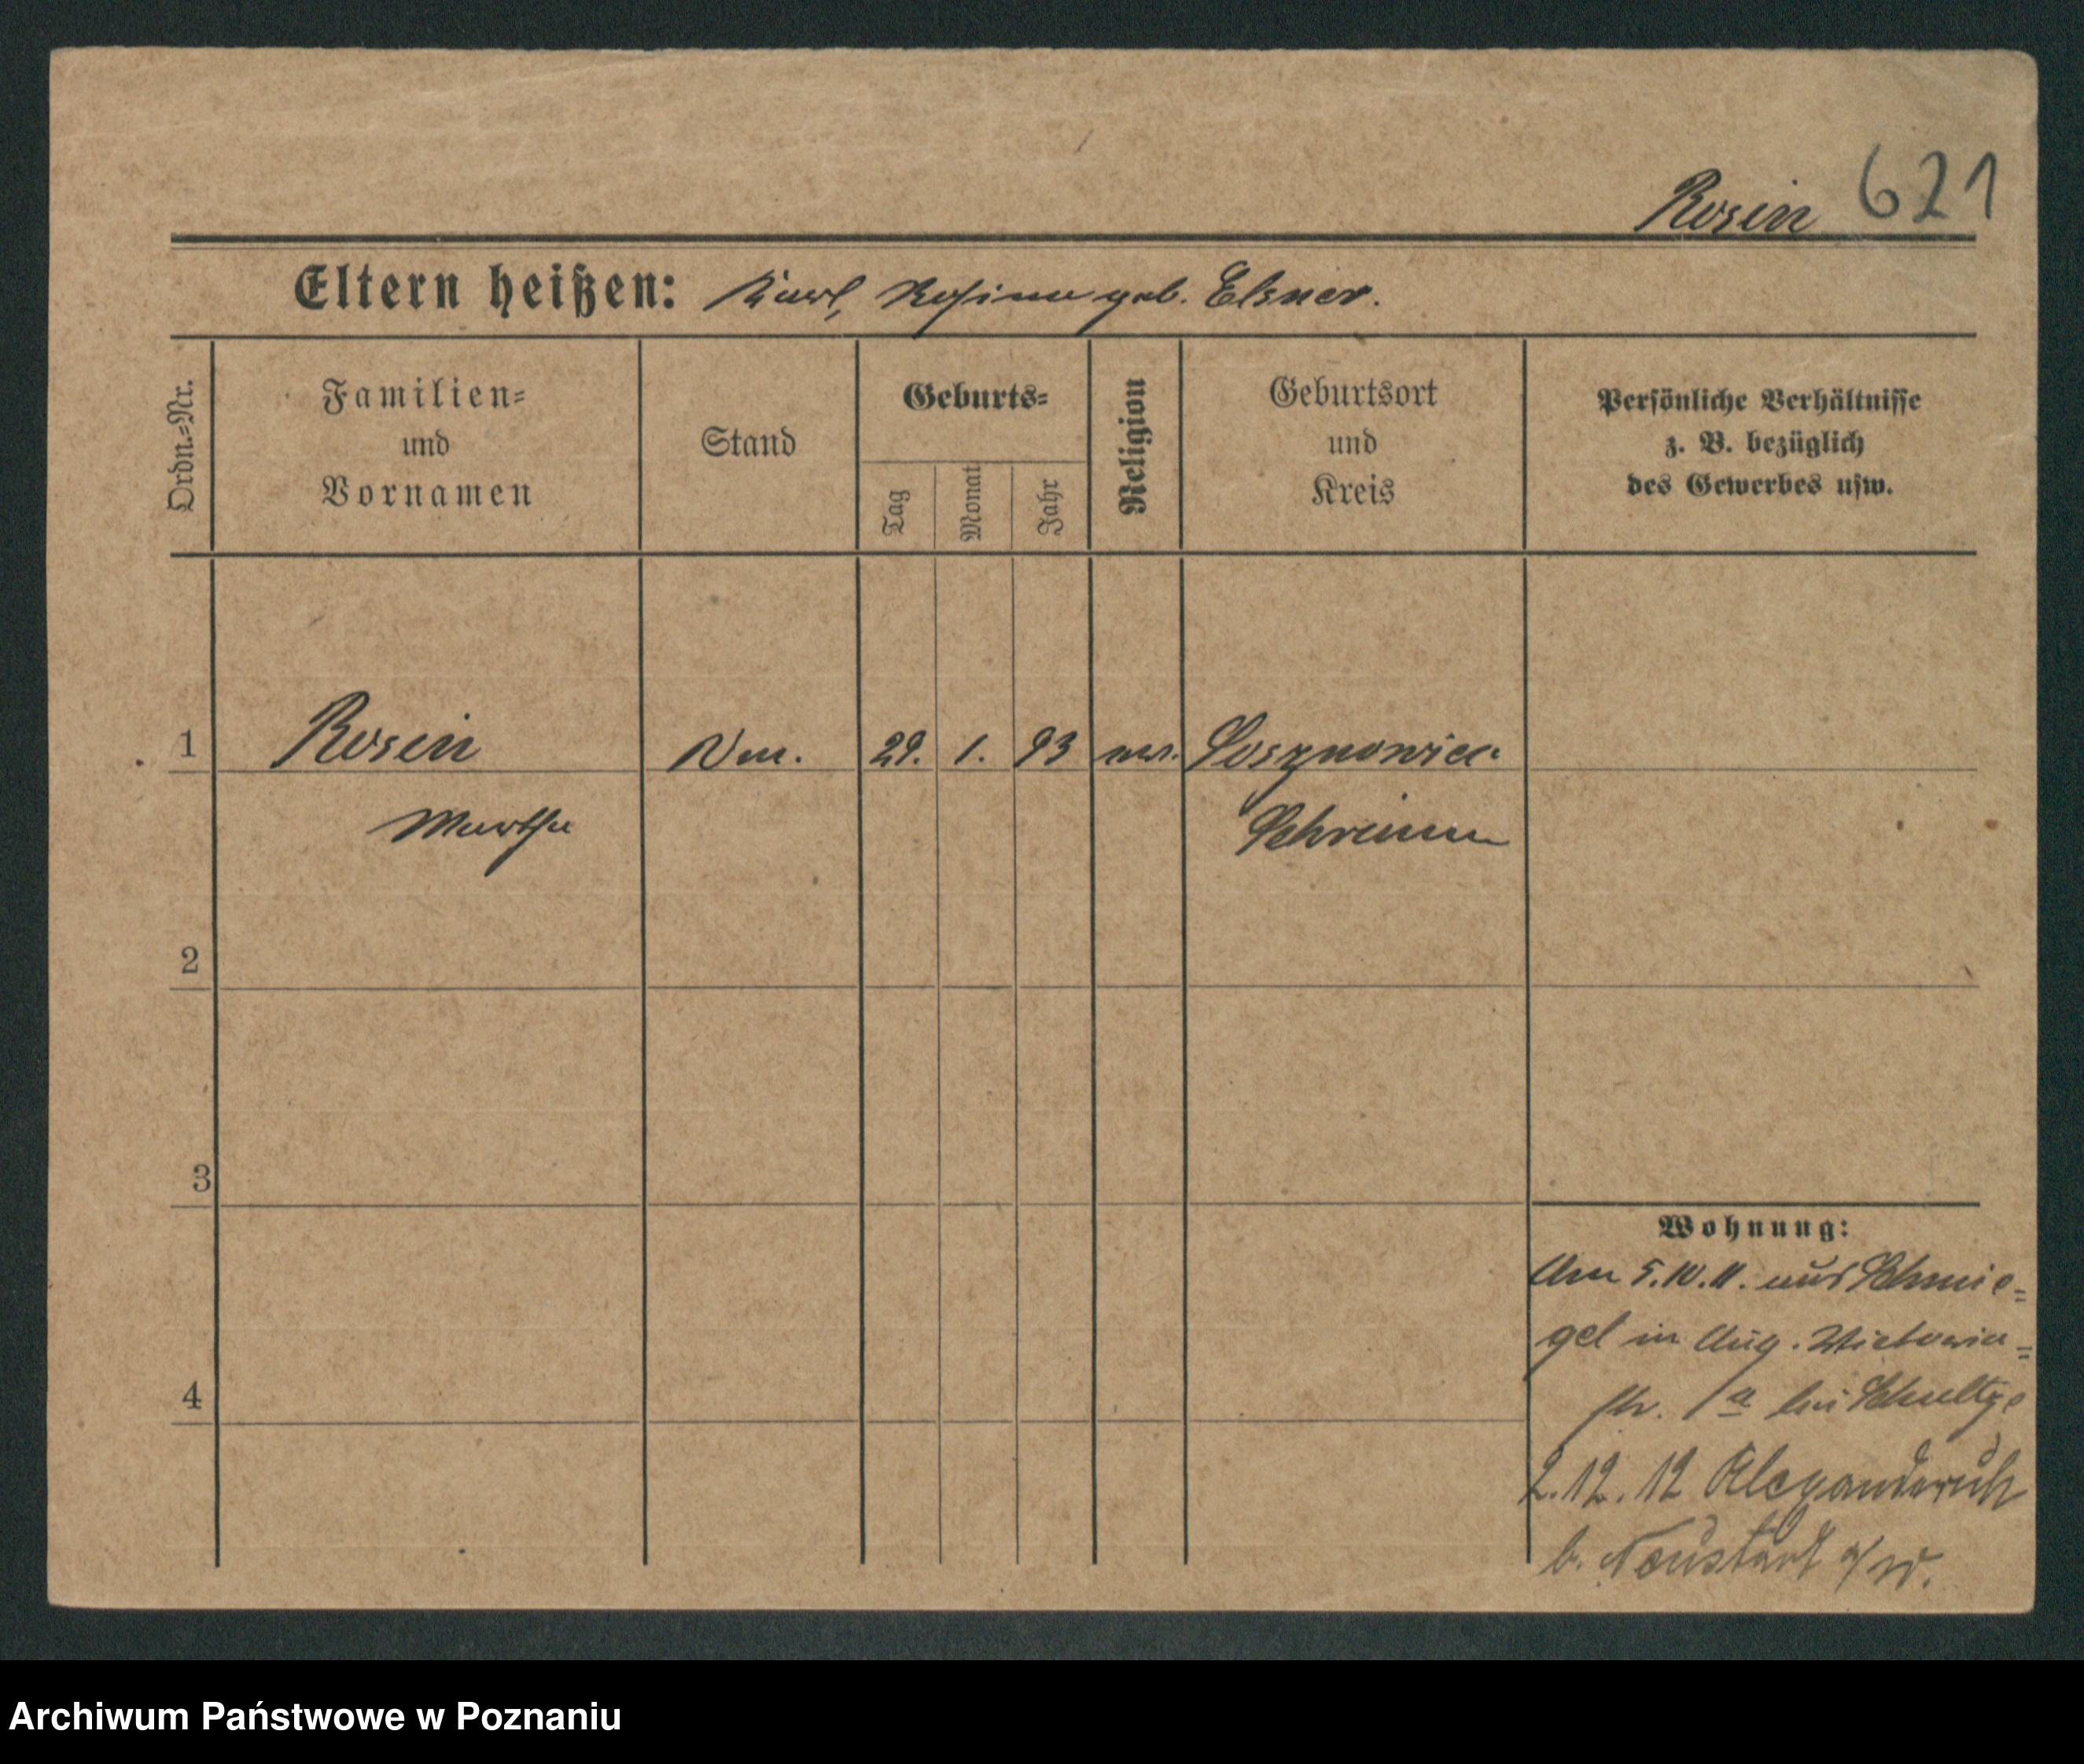 Rosin 621
Eltern heißen: Karl, Rosina geb. Elsner.
Ordn.=Nr.
Familien=
und
Vornamen
Stand
Geburts=
Tag
Monat
Jahr
Religion
Geburtsort
und
Kreis
Persönliche Verhältnisse
z. B. bezüglich
des Gewerbes usw.
1 Rosin 29. 1. 93 Sosznowiec
Martha Schrimm
2
3
4
Wohnung:
Am 5.10.11. aus Schmie=
gel in Aug. Victoria=
str. 1a bei Schultze
2.12.12 Alexanderruh
b. Neustadt a/W.
Archiwum Państwowe w Poznaniu